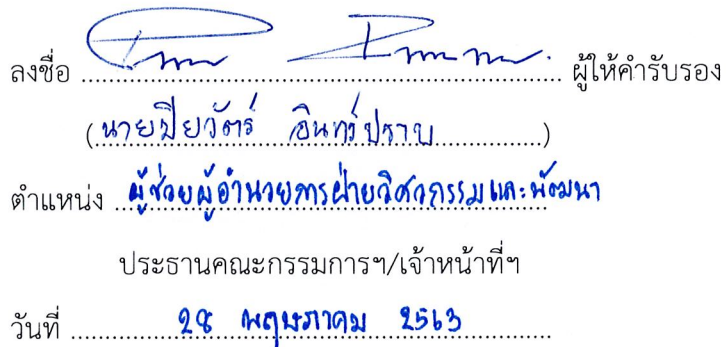 ลงชื่อ ........ ผู้ให้คำรับรอง
(นายปิยวัตร์ อินทร์ปราบ)
ตำแหน่ง ผู้ช่วยผู้อำนวยการฝ่ายวิศวกรรมและพัฒนา
ประธานคณะกรรมการฯ/เจ้าหน้าที่ฯ
วันที่ 28 พฤษภาคม 2563